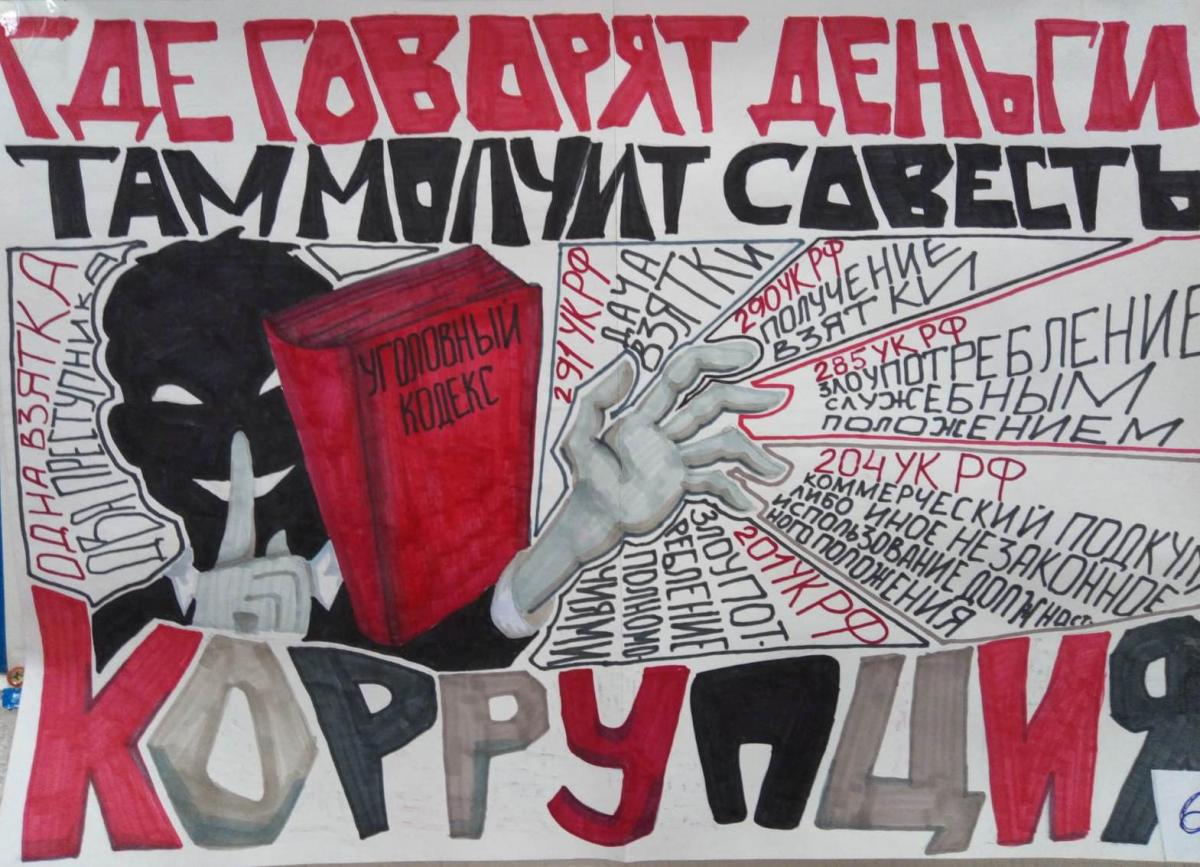 ГДЕ ГОВОРЯТ ДЕНЬГИ
ТАМ МОЛЧИТ СОВЕСТЬ
ОДНА ВЗЯТКА
ДВА ПРЕСТУПНИКА
УГОЛОВНЫЙ
КОДЕКС
291 УК РФ
ДАЧА
ВЗЯТКИ
290 УК РФ
ПОЛУЧЕНИЕ
ВЗЯТКИ
285 УК РФ
ЗЛОУПОТРЕБЛЕНИЕ
СЛУЖЕБНЫМ
ПОЛОЖЕНИЕМ
204 УК РФ
КОММЕРЧЕСКИЙ ПОДКУП
ЛИБО ИНОЕ НЕЗАКОННОЕ
ИСПОЛЬЗОВАНИЕ ДОЛЖНОСТ-
НОГО ПОЛОЖЕНИЯ
201 УК РФ
ЗЛОУПОТ-
РЕБЛЕНИЕ
ПОЛНОМО-
ЧИЯМИ
КОРРУПЦИЯ
6